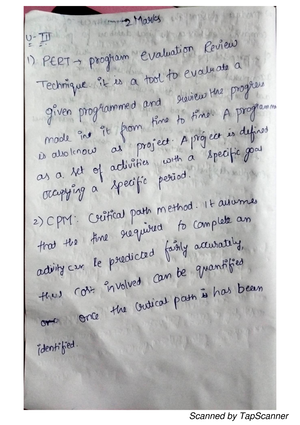 2 Marks
U-III
1) PERT → program Evaluation Review
Technique. it is a tool to evaluate a
given programmed and review the progress
made in it from time to time. A programm
is also know as project. A project is defined
as a set of activities with a specific goal
occupying a specific period.
2) CPM: Critical path method. It assumes
that the time required to complete an
activity can be predicted fairly accurately,
thus cost involved can be quantified
once the critical path is has been
identified.
Scanned by TapScanner